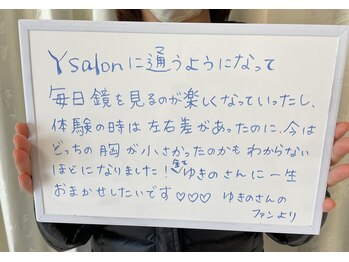 Ysalonに通うようになって
毎日鏡を見るのが楽しくなっていったし、
体験の時は左右差があったのに、今は
どっちの胸が小さかったのかもわからない
ほどになりました！全てゆきのさんに一生
おまかせしたいです♡♡♡ ゆきのさんの
ファンより